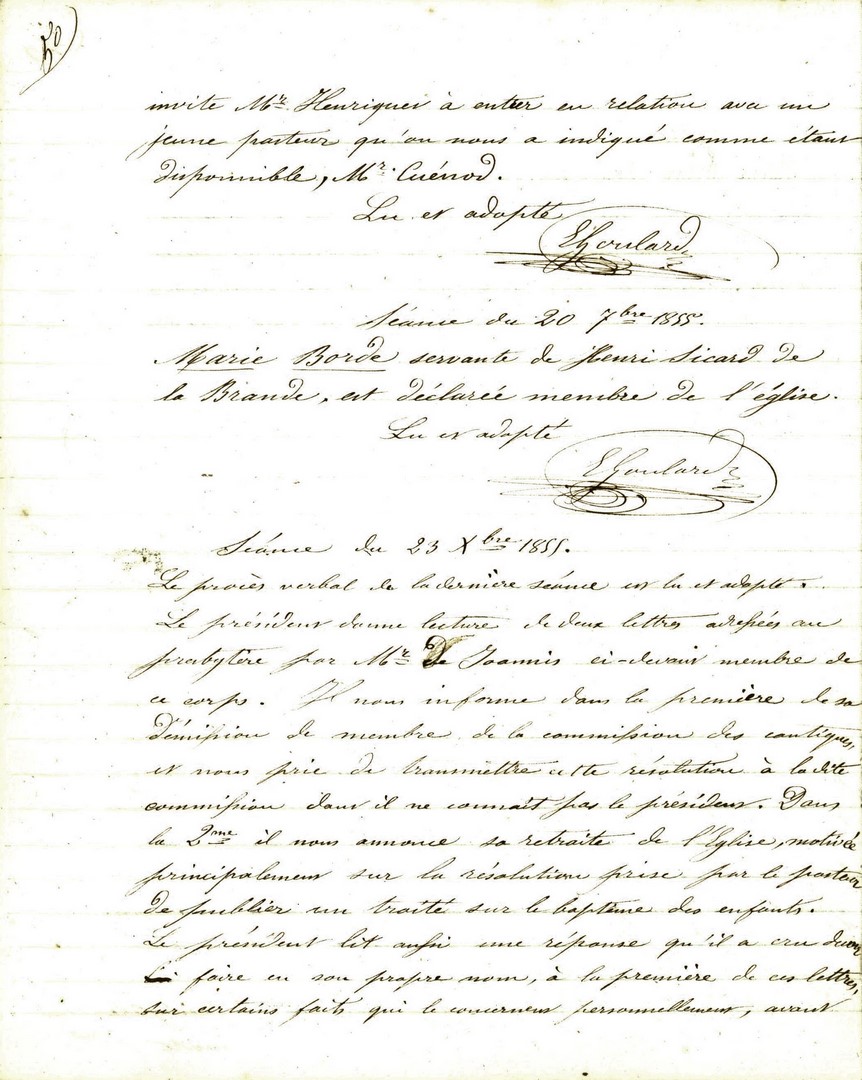 50
invite Mr. Henriquet à entrer en relation avec un
jeune pasteur qu'on nous a indiqué comme étant
disponnible, Mr. Cuénod.
Lu et adopté
E Goulard
Séance du 20 7bre 1855.
Marie Borde servante de Henri Sicard de
la Brande, est déclarée membre de l'église.
Lu et adopté
E Goulard
Séance du 23 Xbre 1855.
Le procès verbal de la dernière séance est lu et adopté.
Le président donne lecture de deux lettres adressées au
presbytère par Mr. de Joannis ci-devant membre de
ce corps. Il nous informe dans la première de sa
démission de membre de la commission des cantiques,
et nous prie de transmettre cette résolution à la dite
commission dont il ne connait pas le président. Dans
la 2me il nous annonce sa retraite de l'Eglise, motivée
principalement sur la résolution prise par le pasteur
de publier un traité sur le baptême des enfants.
Le président lit aussi une réponse qu'il a cru devoir
faire en son propre nom, à la première de ces lettres,
sur certains faits qui le concernent personnellement, avant